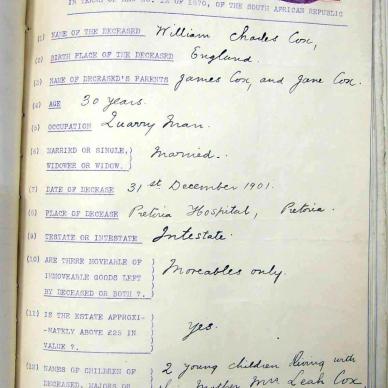 IN TERMS OF LAW NO. 12 OF 1870, OF THE SOUTH AFRICAN REPUBLIC
(1) NAME OF THE DECEASED William Charles Cox,
(2) BIRTH PLACE OF THE DECEASED England.
(3) NAME OF DECEASED'S PARENTS James Cox, and Jane Cox.
(4) AGE 30 years.
(5) OCCUPATION Quarry Man.
(6) MARRIED OR SINGLE, WIDOWER OR WIDOW. Married.
(7) DATE OF DECEASE 31st December 1901.
(8) PLACE OF DECEASE Pretoria Hospital, Pretoria.
(9) TESTATE OR INTESTATE Intestate.
(10) ARE THERE MOVEABLE OR
IMMOVEABLE GOODS LEFT Moveables only.
BY DECEASED OR BOTH ?.
(11) IS THE ESTATE APPROXI-
MATELY ABOVE £25 IN Yes.
VALUE ?.
(12) NAMES OF CHILDREN OF 2 young children living with
DECEASED, MAJORS OR mother Mrs Leah Cox